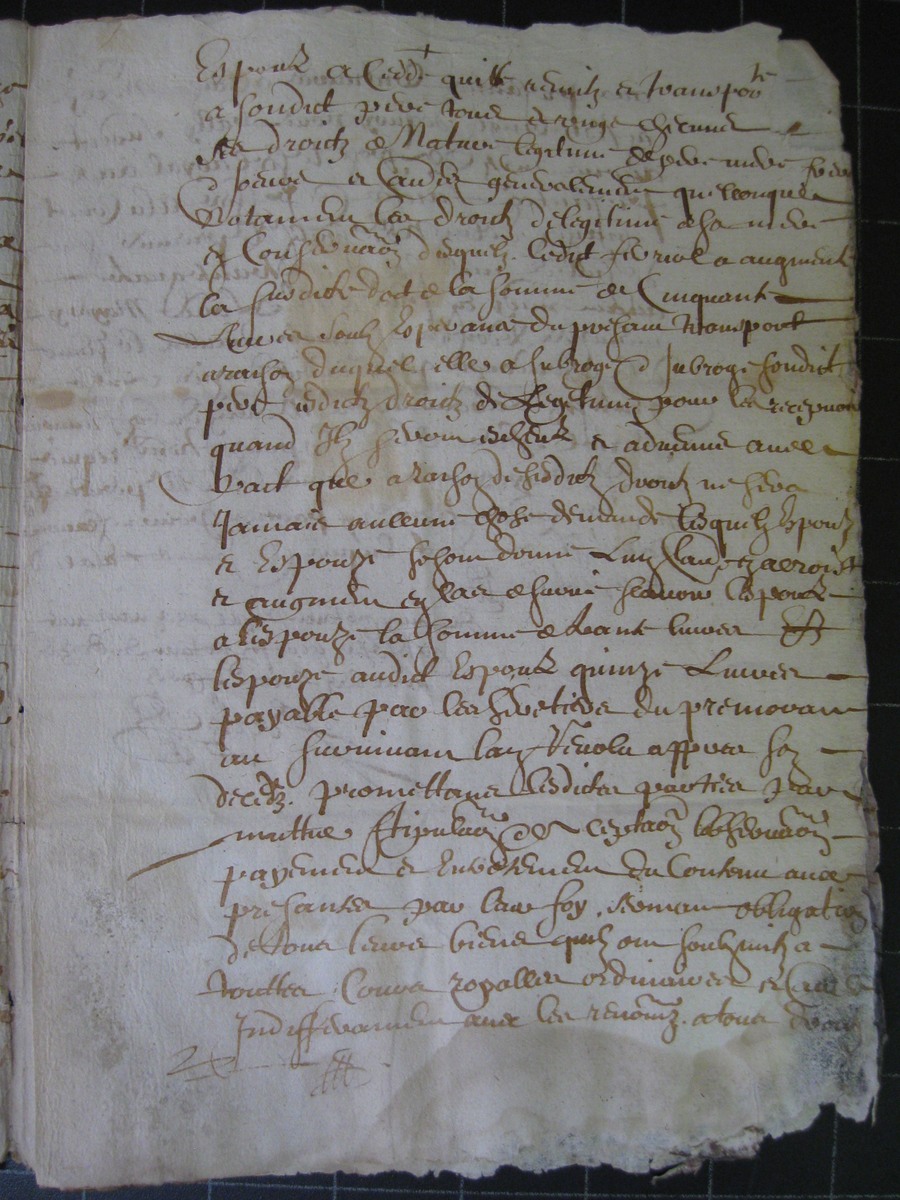 Espouze a Cedde quitte remitz et transporte
a sondict pere tous et ungs chacuns
ses droictz de Nature legitime de pere mere frere
seurs et autres generalement quelconques
Notamment les droictz de legitime de sa mere
en Consideration desquelz ledict feriol a augmente
la susdicte dot de la somme de Cinquante
Livres soubz Esperance du presant transport
a raison duquel elle a subroge et subroge sondict
pere esdictz droictz de Legitime pour les recepvoir
quand Ilz seront escheuz et advenus avec
pact que a raison desdictz droictz ne sera
Jamais aulcune chose demande lesquelz Espoux
et Espouze se sont donne
et augment en cas de survie scavoir lespoux
a lespouze la somme de trante livres Et
lespouze audict Espoux quinze Livres
payable par les heretiers du premourant
au survivant lan revolu appres son
decedz. promettans lesdictes parties par
mutue stipulation et acceptation lobservation
payement et Entretenement du Contenu aux
presantes par leur foy, serment obligation
de tous leurs biens quilz ont soubzmitz a
touttes Cours royalles ordinaires et
Indifferament avec les renontz. a tous droictz